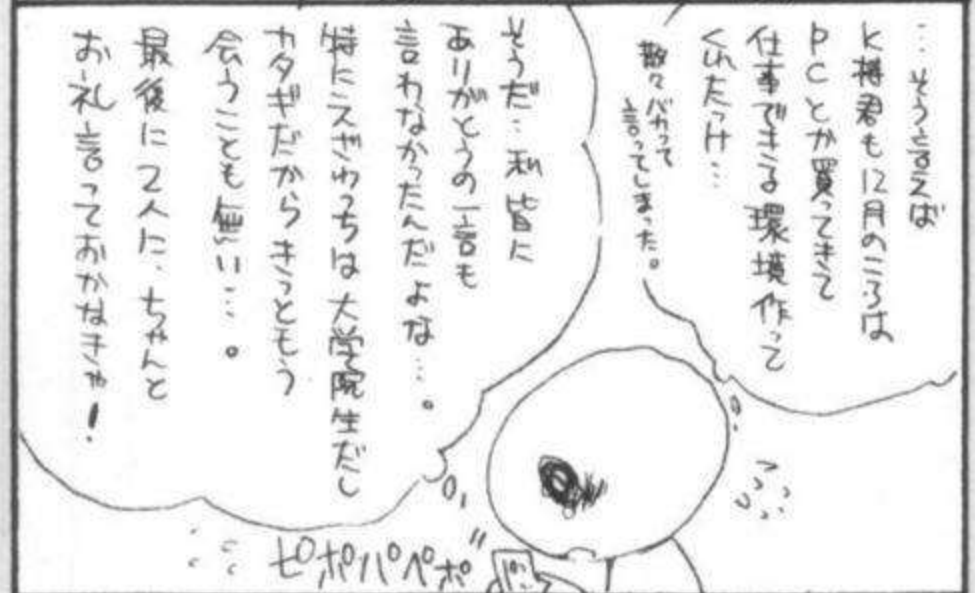 …そう言えば
K樽君も12月のころは
PCとか買ってきて
仕事できる環境作って
くれたっけ…
散々バカって
言ってしまった。
そうだ…私皆に
ありがとうの一言も
言わなかったんだよな…。
特にえざわっちは大学院生だし
カタギだからきっともう
会うことも無い…。
最後に2人に、ちゃんと
お礼言っておかなきゃ!
ピポパペポ